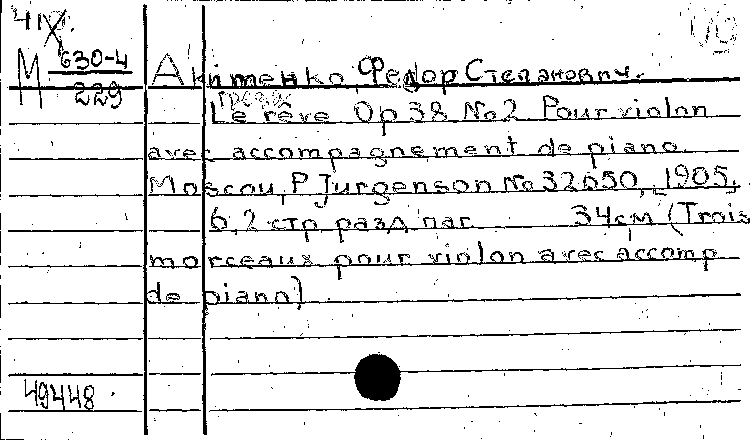 М 630-4
229
Акименко, Федор Степанович.
Грезы
Le rêve Op 38 No 2 Pour violon
avec accompagnement de piano.
Moscou, P Jurgenson No 32650, 1905.
6, 2 стр разд паг 34см (Trois
morceaux pour violon avec accomp
de piano)
49448